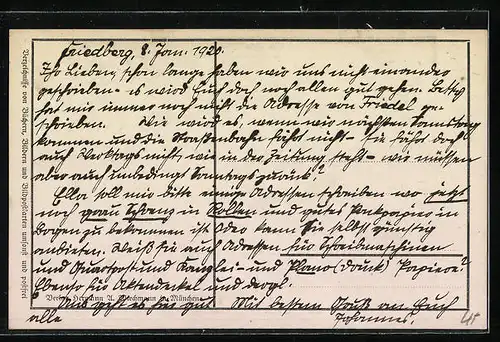 Friedberg, 8. Jan. 1920.
Ihr Lieben, schon lange haben wir uns nicht einander
geschrieben - es wird Euch doch noch allen gut gehen. Betty
hat mir immer noch nicht die Adresse von Friedel ge-
schrieben. Wie wird es, wenn wir nächsten Samstag
kommen und die Straßenbahn fährt nicht - sie fährt doch
auch Werktags nicht, wie in der Zeitung steht - wir müssen
aber auch unbedingt Sonntags zurück?
Ella soll mir bitte einige Adressen schreiben wo jetzt
noch grau in Rollen und gutes Packpapier in
Bogen zu bekommen ist oder kann Sie selbst günstig
anbieten. Weiß sie auch Adressen für Schreibmaschinen
und Quartpost und Kanzlei- und Plano (Druck) Papiere?
Ebenso für Aktendeckel und dergl.
Uns geht es sehr gut Mit bestem Gruß an Euch
alle Johannes.
Verzeichnisse von Büchern, Bildern und Bildpostkarten umsonst und postfrei
Verlag Hermann A. Wiechmann in München
45